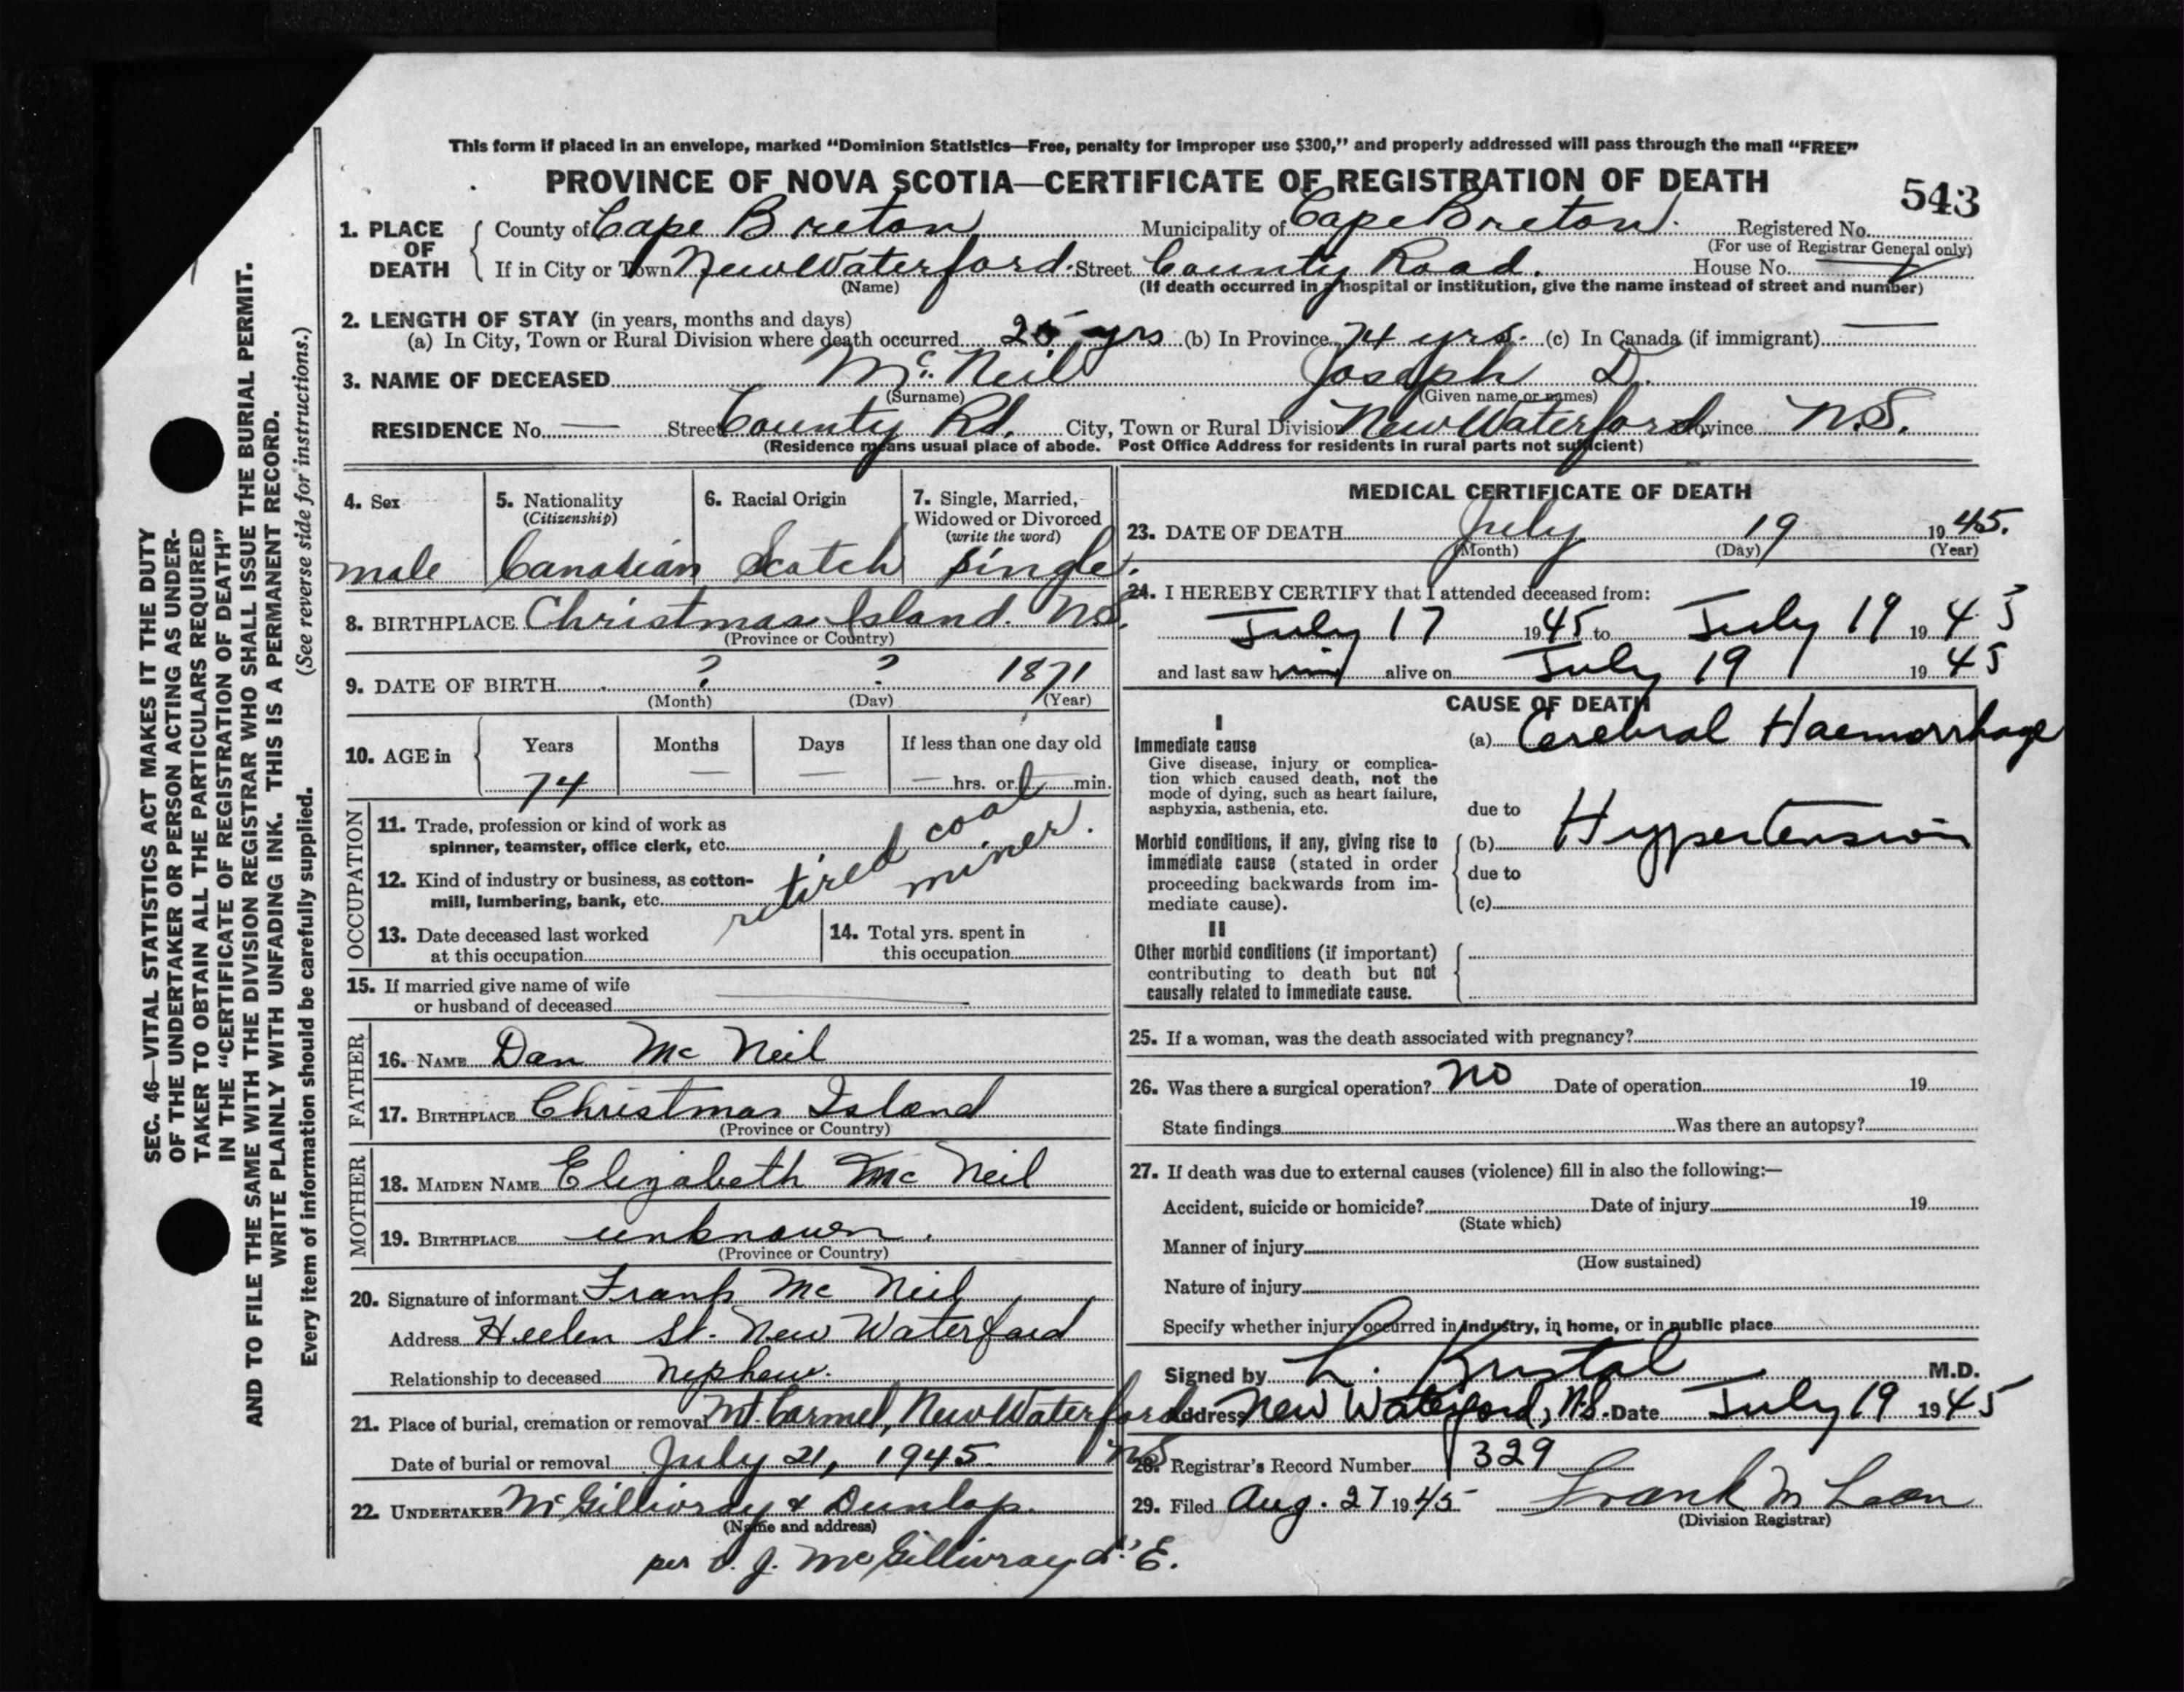 This form if placed in an envelope, marked “Dominion Statistics—Free, penalty for improper use $300,” and properly addressed will pass through the mail “FREE”
PROVINCE OF NOVA SCOTIA—CERTIFICATE OF REGISTRATION OF DEATH
543
1. PLACE OF DEATH
County of Cape Breton Municipality of Cape Breton. Registered No.
(For use of Registrar General only)
If in City or Town New Waterford. Street County Road. House No. —
(Name) (If death occurred in a hospital or institution, give the name instead of street and number)
2. LENGTH OF STAY (in years, months and days)
(a) In City, Town or Rural Division where death occurred 25 yrs (b) In Province 74 yrs. (c) In Canada (if immigrant) —
3. NAME OF DECEASED McNeil Joseph D.
(Surname) (Given name or names)
RESIDENCE No. — Street County Rd. City, Town or Rural Division New Waterford, Province N.S.
(Residence means usual place of abode. Post Office Address for residents in rural parts not sufficient)
4. Sex
male
5. Nationality
(Citizenship)
Canadian
6. Racial Origin
Scotch
7. Single, Married,
Widowed or Divorced
(write the word)
single.
8. BIRTHPLACE Christmas Island. NS.
(Province or Country)
9. DATE OF BIRTH ? ? 1871
(Month) (Day) (Year)
10. AGE in
Years Months Days If less than one day old
74 — — — hrs. or — min.
OCCUPATION
11. Trade, profession or kind of work as
spinner, teamster, office clerk, etc.
retired coal
miner.
12. Kind of industry or business, as cotton-
mill, lumbering, bank, etc.
13. Date deceased last worked
at this occupation
14. Total yrs. spent in
this occupation
15. If married give name of wife
or husband of deceased —
FATHER
16. NAME Dan McNeil
17. BIRTHPLACE Christmas Island
(Province or Country)
MOTHER
18. MAIDEN NAME Elizabeth McNeil
19. BIRTHPLACE unknown.
(Province or Country)
20. Signature of informant Frank McNeil
Address Heelen St. New Waterford
Relationship to deceased nephew.
21. Place of burial, cremation or removal Mt. Carmel, New Waterford
NS
Date of burial or removal July 21, 1945.
22. UNDERTAKER McGillivray & Dunlop.
(Name and address)
per J. McGillivray E.
MEDICAL CERTIFICATE OF DEATH
23. DATE OF DEATH July 19 1945.
(Month) (Day) (Year)
24. I HEREBY CERTIFY that I attended deceased from:
July 17 1945 to July 19 1945
and last saw him alive on July 19 1945
CAUSE OF DEATH
I
Immediate cause
Give disease, injury or complica-
tion which caused death, not the
mode of dying, such as heart failure,
asphyxia, asthenia, etc.
(a) Cerebral Haemorrhage
due to
Morbid conditions, if any, giving rise to
immediate cause (stated in order
proceeding backwards from im-
mediate cause).
(b) Hypertension
due to
(c)
II
Other morbid conditions (if important)
contributing to death but not
causally related to immediate cause.
25. If a woman, was the death associated with pregnancy?
26. Was there a surgical operation? No Date of operation 19
State findings Was there an autopsy?
27. If death was due to external causes (violence) fill in also the following:—
Accident, suicide or homicide? Date of injury 19
(State which)
Manner of injury
(How sustained)
Nature of injury
Specify whether injury occurred in industry, in home, or in public place
Signed by L. Kristal M.D.
Address New Waterford, N.S. Date July 19 1945
28. Registrar's Record Number 329
29. Filed Aug. 27 1945 Frank M Leon
(Division Registrar)
SEC. 46—VITAL STATISTICS ACT MAKES IT THE DUTY
OF THE UNDERTAKER OR PERSON ACTING AS UNDER-
TAKER TO OBTAIN ALL THE PARTICULARS REQUIRED
IN THE “CERTIFICATE OF REGISTRATION OF DEATH”
AND TO FILE THE SAME WITH THE DIVISION REGISTRAR WHO SHALL ISSUE THE BURIAL PERMIT.
WRITE PLAINLY WITH UNFADING INK. THIS IS A PERMANENT RECORD.
Every item of information should be carefully supplied. (See reverse side for instructions.)